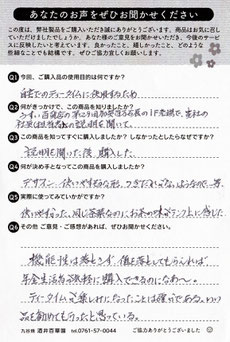 あなたのお声をぜひお聞かせください
この度は、弊社製品をご購入いただき誠にありがとうございます。商品はお気に召し
ていただけましたでしょうか。あなた様のご意見をお聞かせいただき、今後のサービ
スに反映したいと考えています。良かったこと、嬉しかったこと、どのような
些細なことでも結構です。ぜひご協力宜しくお願いします。
Q1 今回、ご購入品の使用目的は何ですか？
自宅でのティータイムに使用するため
Q2 何がきっかけで、この商品を知りましたか？
説明を聞いて。
Q3 この商品を知ってすぐに購入しましたか？ しなかったとしたらなぜですか？
説明を聞いた後、購入した。
Q4 何が決め手となってこの商品を購入しましたか？
デザイン
Q5 実際に使ってみていかがですか？
使いやすかった。同じ茶葉なのにお茶の味が ランク上に感じた
Q6 その他 ご意見・ご感想があれば、ぜひお聞かせください。
機能性は落とさず、値を落としてもらえれば、
年金生活者でも気軽に購入できるのになあ〜。
ティータイムが楽しみになったことは確かである。いい
品を勧めてもらったと思っている。
九谷焼 酒井百華園 tel.0761-57-0044 ご協力ありがとうございました